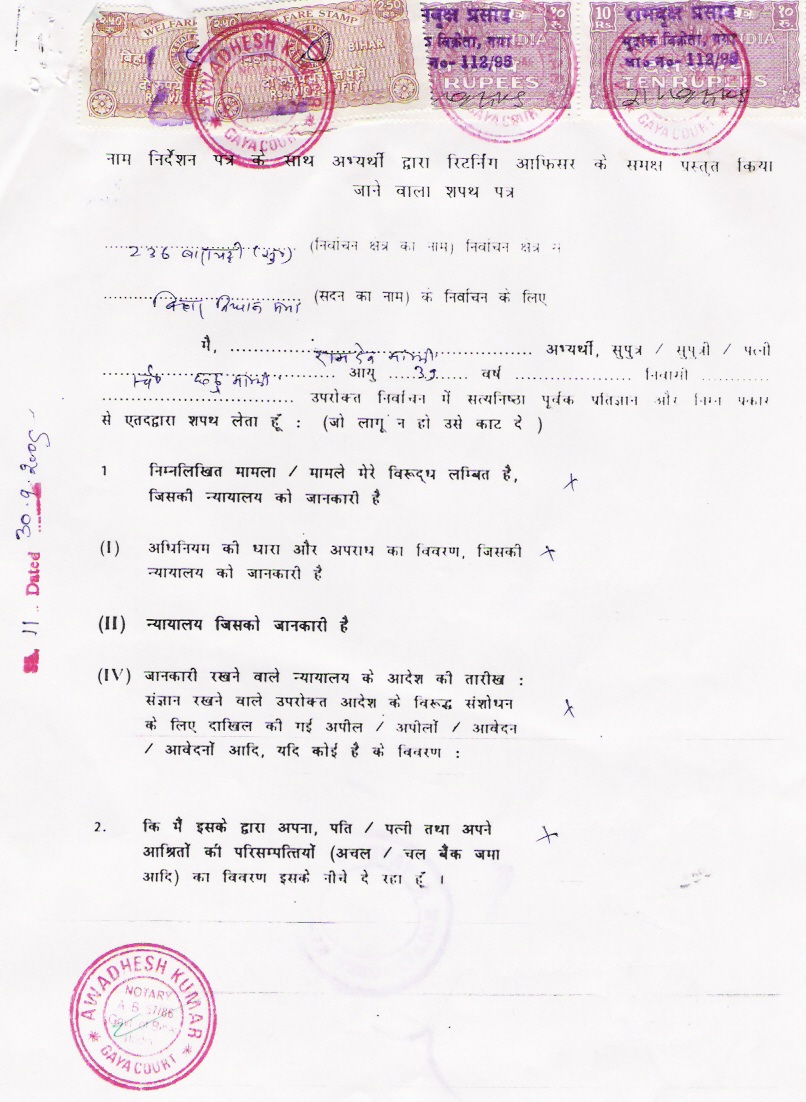 WELFARE
WELFARE STAMP
2.50 RS.
BIHAR
रामवृक्ष प्रसाद
विक्रेता, गया
न०- 112/98
१० रु.
INDIA
RUPEES
10 Rs.
रामवृक्ष प्रसाद
मुद्रांक विक्रेता, गया
ला० न०- 112/98
१० रु.
INDIA
TEN RUPEES
AWADHESH KUMAR
GAYA COURT
नाम निर्देशन पत्र के साथ अभ्यर्थी द्वारा रिटर्निंग आफिसर के समक्ष पस्तुत किया
जाने वाला शपथ पत्र
236 (निर्वाचन क्षेत्र का नाम) निर्वाचन क्षेत्र से
बिहार विधान सभा (सदन का नाम) के निर्वाचन के लिए
मै, रामदेव मांझी अभ्यर्थी, सुपुत्र / सुपुत्री / पत्नी
मांझी आयु 39 वर्ष निवासी
उपरोक्त निर्वाचन में सत्यनिष्ठा पूर्वक प्रतिज्ञान और निम्न पकार
से एतदद्वारा शपथ लेता हूँ : (जो लागू न हो उसे काट दे )
1 निम्नलिखित मामला / मामले मेरे विरूद्ध लम्बित है,
जिसकी न्यायालय को जानकारी है
(I) अधिनियम की धारा और अपराध का विवरण, जिसकी
न्यायालय को जानकारी है
(II) न्यायालय जिसको जानकारी है
(IV) जानकारी रखने वाले न्यायालय के आदेश की तारीख :
संज्ञान रखने वाले उपरोक्त आदेश के विरूद्ध संशोधन
के लिए दाखिल की गई अपील / अपीलों / आवेदन
/ आवेदनों आदि, यदि कोई है के विवरण :
2. कि मैं इसके द्वारा अपना, पति / पत्नी तथा अपने
आश्रितों की परिसम्पत्तियों (अचल / चल बैंक जमा
आदि) का विवरण इसके नीचे दे रहा हूँ ।
11 Dated 30.9.2005
AWADHESH KUMAR
NOTARY
GAYA COURT